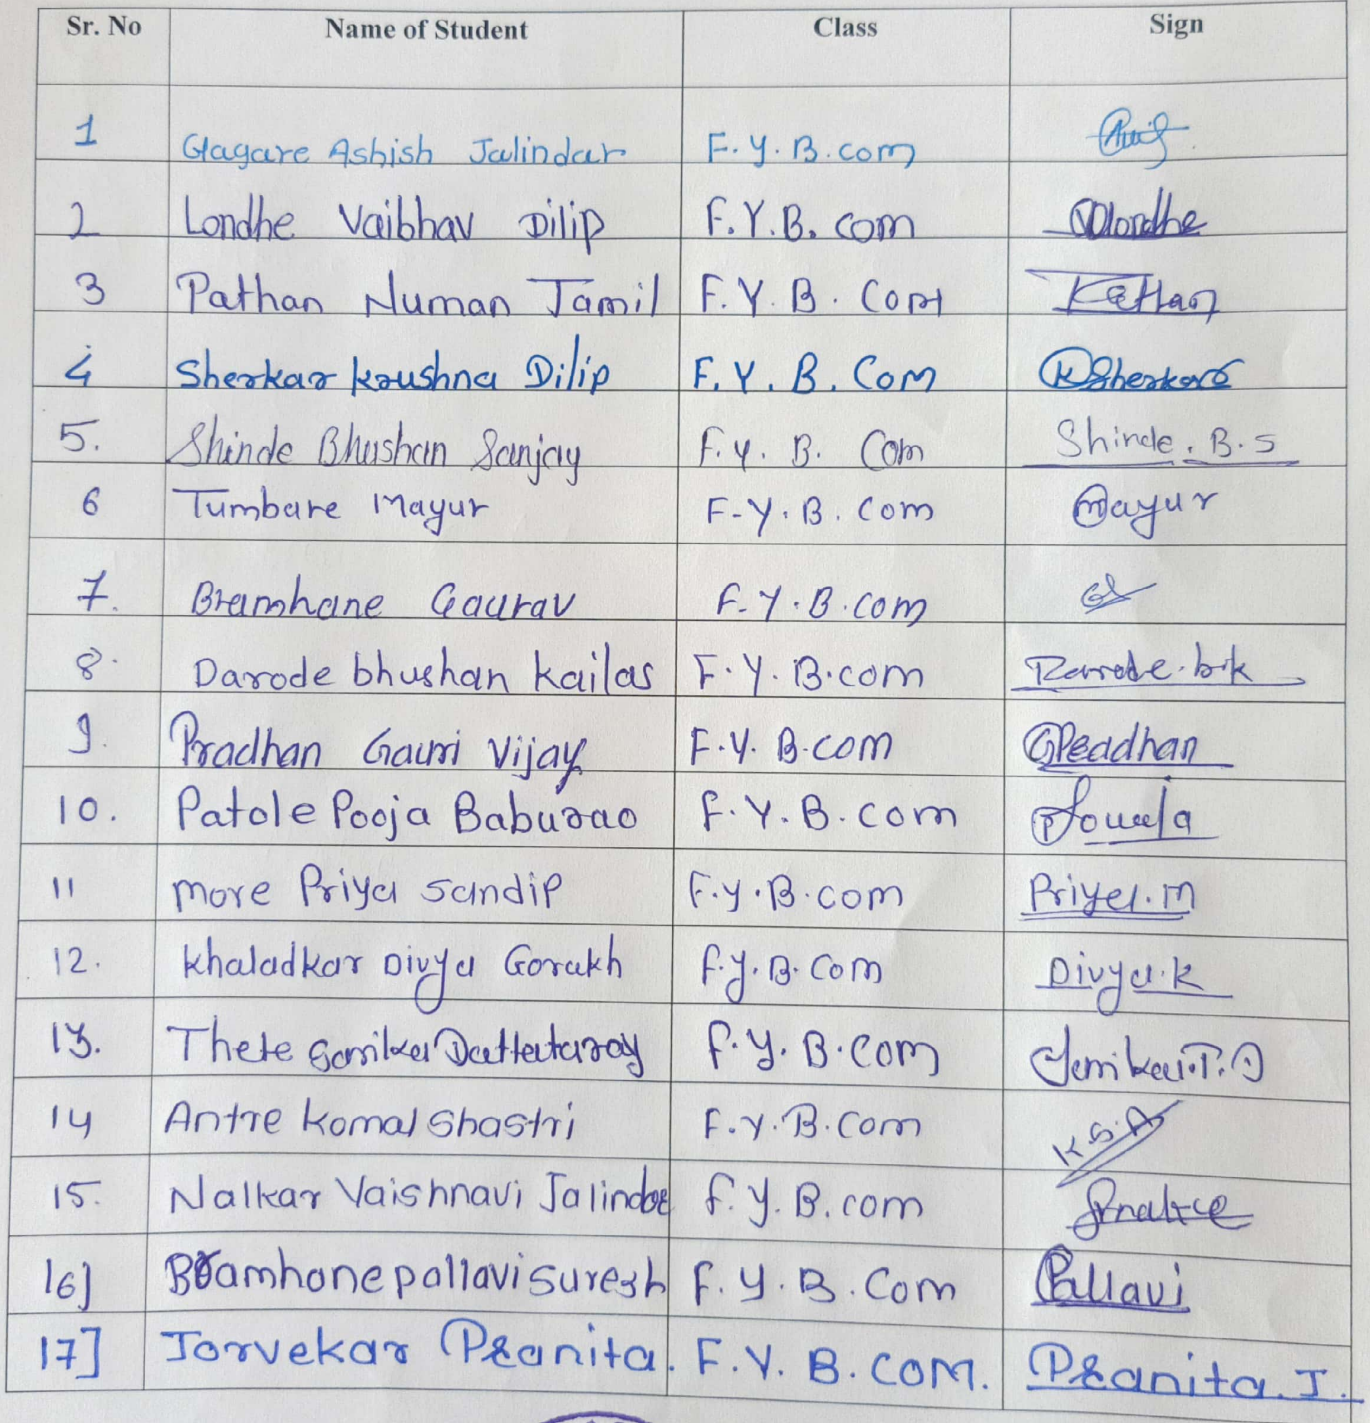 Sr. No Name of Student Class Sign
1 Gagare Ashish Jalindar F.Y.B.com
2 Londhe Vaibhav Dilip F.Y.B. com Vlondhe
3 Pathan Numan Jamil F.Y.B. Com
4 Sherkar krushna Dilip F.Y.B. Com KSherkar
5. Shinde Bhushan Sanjay F.Y. B. Com Shinde. B.S
6 Tumbare Mayur F-Y.B. Com Mayur
7. Bramhane Gaurav F-Y.B.com
8. Darode bhushan kailas F.Y.B.com Darode.b.k
9. Pradhan Gauri Vijay F.Y.B.com GPradhan
10. Patole Pooja Baburao F.Y.B.com
11 more Priya sandip F.y.B.com Priya.m
12. khaladkar Divya Gorakh F.y.B.Com Divya.k
13. Thete Sanika Dattataray F.y.B.com Sanika.T.D
14 Antre komal Shastri F.Y.B.Com K.S.A
15. Nalkar Vaishnavi Jalindar F.y.B.com
16] Bramhane pallavi suresh F.y.B.Com Pallavi
17] Jorvekar Pranita. F.Y.B.COM. Pranita.J.